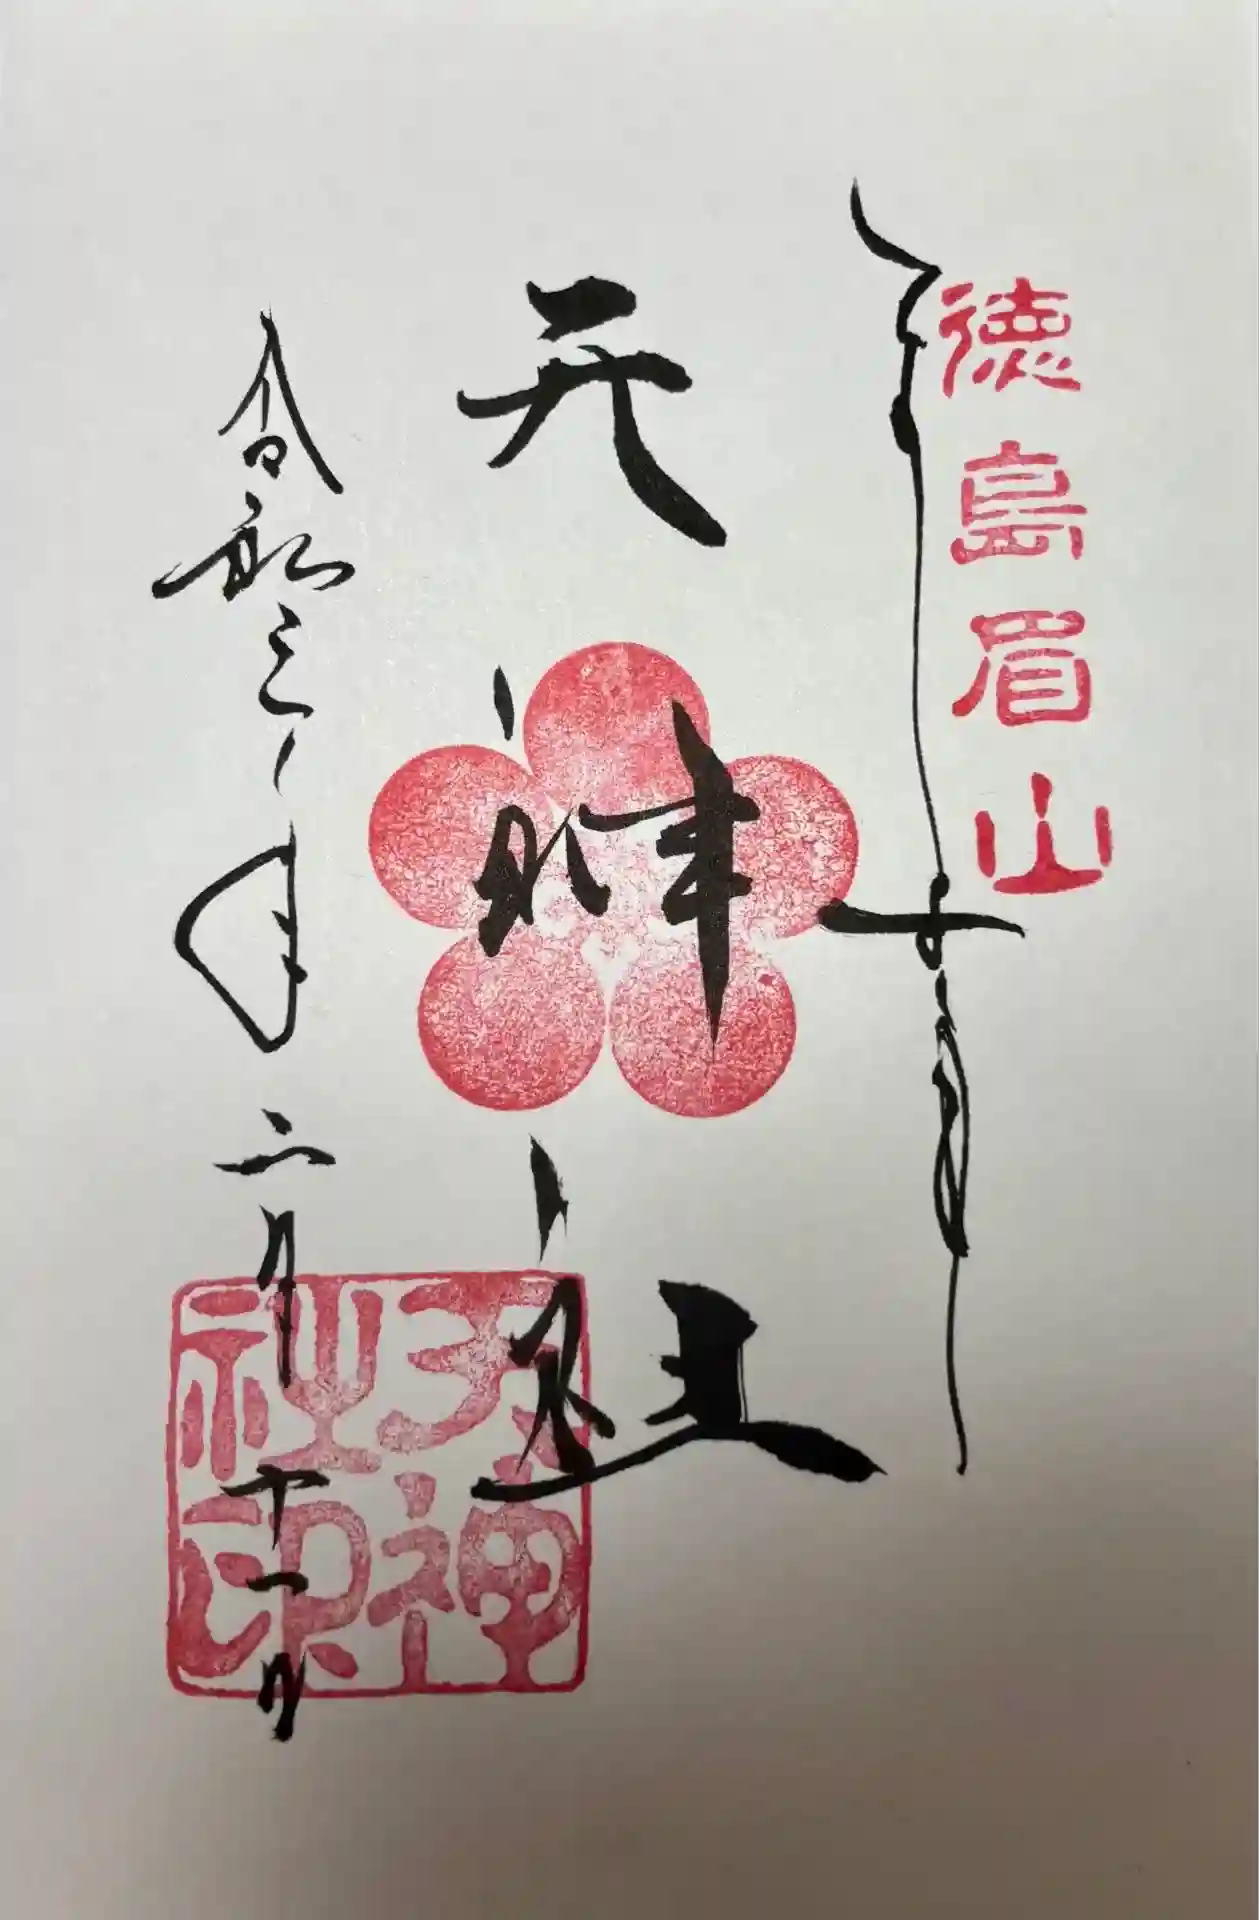 徳島眉山
天神社
天神社印
令和三年二月十一日